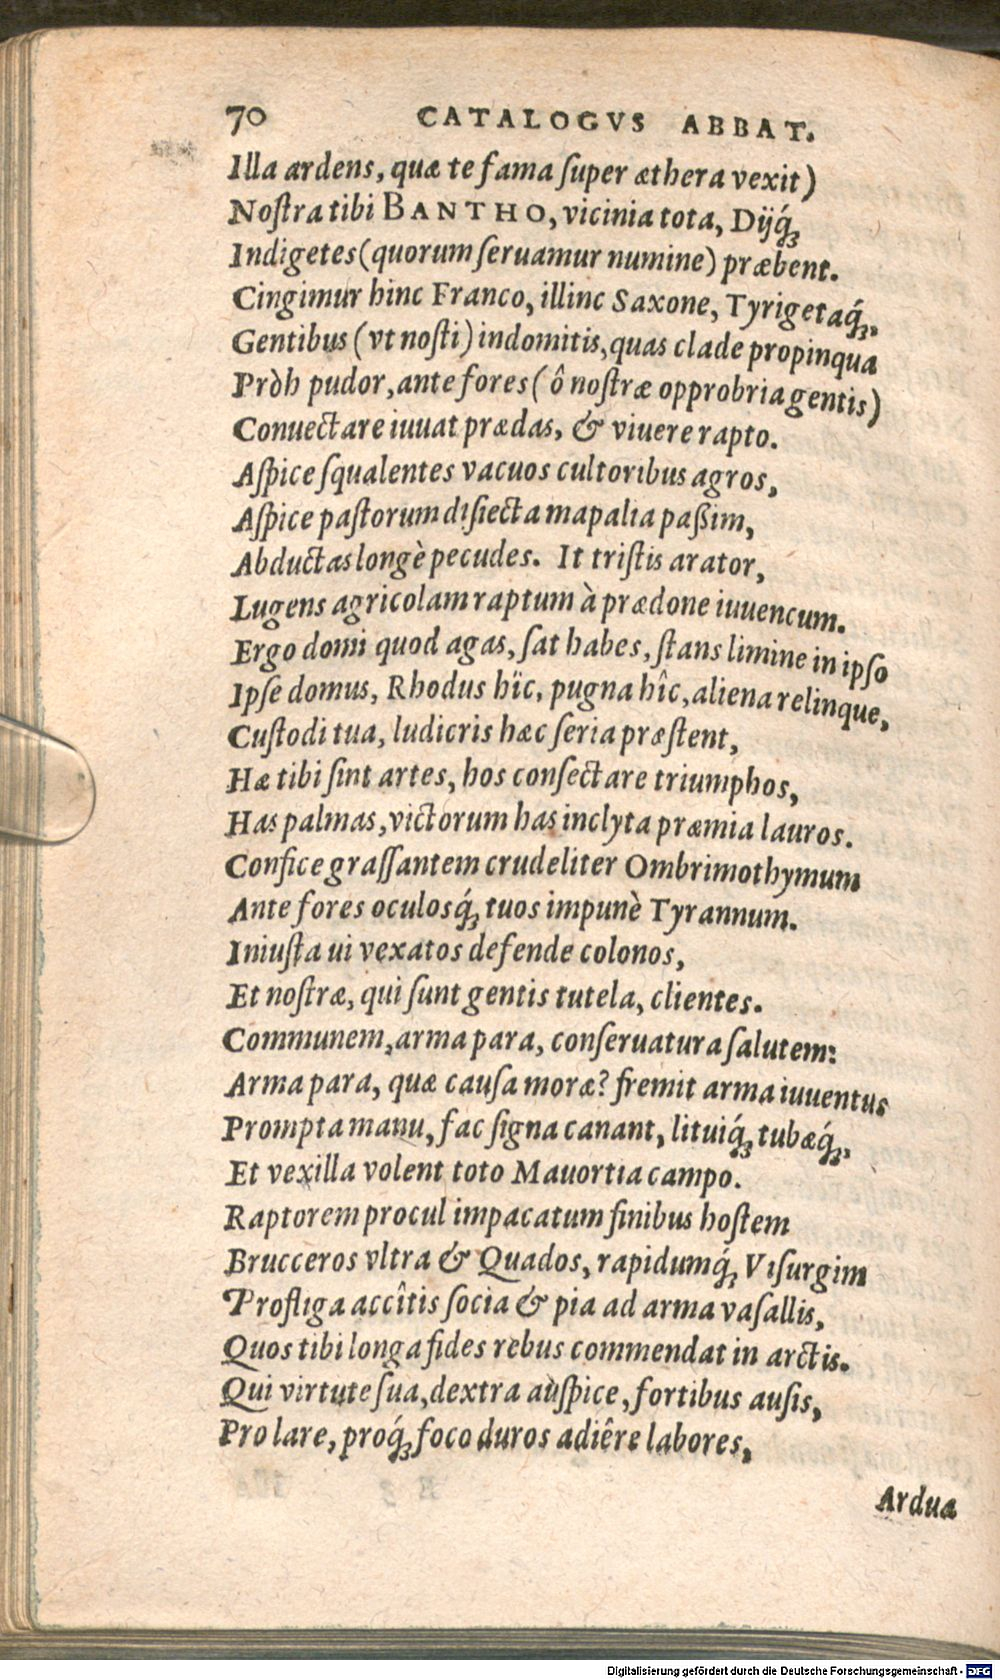 70 CATALOGVS ABBAT.
Illa ardens, quæ te fama ſuper æthera vexit)
Noſtra tibi BANTHO, vicinia tota, Dijq́;
Indigetes (quorum ſeruamur numine) præbent.
Cingimur hinc Franco, illinc Saxone, Tyrigetaq́;,
Gentibus (vt noſti) indomitis, quas clade propinqua
Pròh pudor, ante fores (ô noſtræ opprobria gentis)
Conuectare iuuat prædas, & viuere rapto.
Aſpice ſqualentes vacuos cultoribus agros,
Aſpice paſtorum diſiecta mapalia paßim,
Abductas longè pecudes. It triſtis arator,
Lugens agricolam raptum à prædone iuuencum.
Ergo domi quod agas, ſat habes, ſtans limine in ipſo
Ipſe domus, Rhodus hîc, pugna hîc, aliena relinque,
Cuſtodi tua, ludicris hæc ſeria præſtent,
Hæ tibi ſint artes, hos conſectare triumphos,
Has palmas, victorum has inclyta præmia lauros.
Confice graſſantem crudeliter Ombrimothymum
Ante fores oculosq́; tuos impunè Tyrannum.
Iniuſta ui vexatos defende colonos,
Et noſtræ, qui ſunt gentis tutela, clientes.
Communem, arma para, conſeruatura ſalutem:
Arma para, quæ cauſa moræ? fremit arma iuuentus
Prompta manu, fac ſigna canant, lituiq́; tubæq́;,
Et vexilla volent toto Mauortia campo.
Raptorem procul impacatum finibus hoſtem
Brucceros vltra & Quados, rapidumq́; Viſurgim
Profliga accîtis ſocia & pia ad arma vaſallis,
Quos tibi longa fides rebus commendat in arctis.
Qui virtute ſua, dextra auſpice, fortibus auſis,
Pro lare, proq́; foco duros adiêre labores,
Ardua
Digitalisierung gefördert durch die Deutsche Forschungsgemeinschaft - DFG